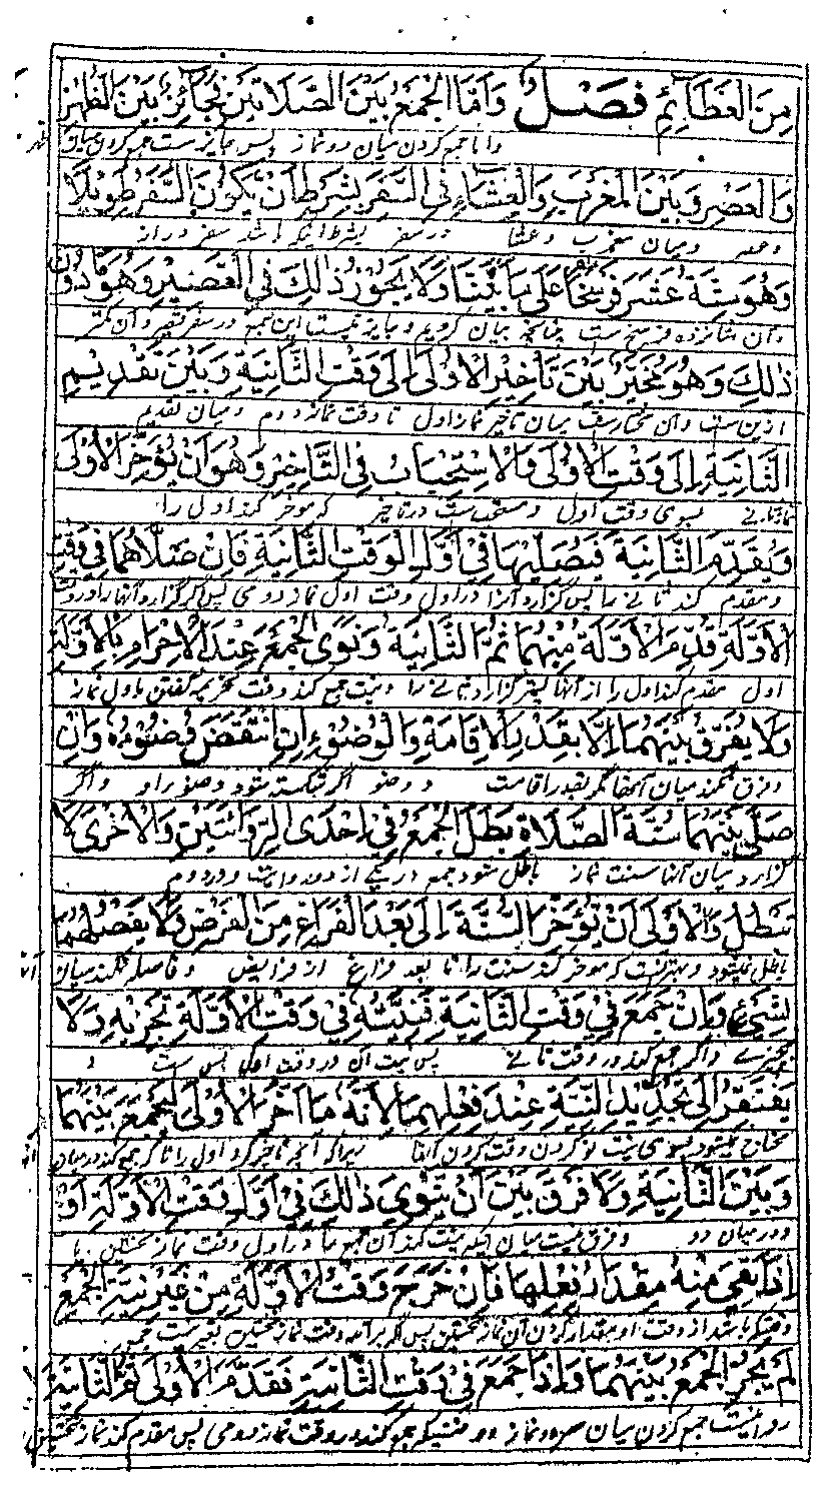 مِنَ العَطَآئِمِ فَصْلٌ وَاَمَّا الجَمْعُ بَيْنَ الصَّلَاتَيْنِ فَجَائِزٌ بَيْنَ الظُّهْرِ
واما جمع کردن میان دو نماز پس جایز ست جمع کردن میان
وَالْعَصْرِ وَبَيْنَ الْمَغْرِبِ وَالْعِشَاءِ فِي السَّفَرِ بِشَرْطِ اَنْ يَكُوْنَ السَّفَرُ طَوِيْلًا
وعصر ومیان مغرب وعشا در سفر بشرط اینکه باشد سفر دراز
وَهُوَ سِتَّةَ عَشَرَ فَرْسَخًا عَلَى مَا بَيَّنَّا وَلَا يَجُوْزُ ذٰلِكَ فِي القَصِيْرِ وَهُوَ مَا دُوْنَ
وآن شانزده فرسخ ست چنانچه بیان کردیم و جایز نیست این جمع در سفر قصیر وآن کمتر
ذٰلِكَ وَهُوَ مُخَيَّرٌ بَيْنَ تَأخِيْرِ الْاُوْلٰى اِلٰى وَقْتِ الثَّانِيَةِ وَبَيْنَ تَقْدِيْمِ
ازین ست وآن مختارست میان تاخیر نماز اول تا وقت نماز دوم ومیان تقدیم
الثَّانِيَةِ اِلٰى وَقْتِ الْاُوْلٰى وَالْاِسْتِحْبَابُ فِي التَّاخِيْرِ وَهُوَ اَنْ يُؤَخِّرَ الْاُوْلٰى
بسوی وقت اول ومستحب ست در تاخیر که موخر کند اول را
وَيُقَدِّمَ الثَّانِيَةَ فَيُصَلِّيْهَا فِي اَوَّلِ الْوَقْتِ الثَّانِيَةِ فَاِنْ صَلَّاهُمَا فِي وَقْتِ
ومقدم کند ثانی را پس گزارد آنرا در اول وقت اول نماز دومی پس اگر گزارد آنها را در وقت
الْاَوَّلَةِ قَدَّمَ الْاَوَّلَةَ مِنْهُمَا ثُمَّ الثَّانِيَةَ وَنَوَى الْجَمْعَ عِنْدَ الْاِحْرَامِ بِالْاَوَّلَةِ
اول مقدم کند اول را از آنها پستر گزارد ثانی را ونیت جمع کند وقت تحریمه گفتن باول نماز
وَلَا يُفَرِّقُ بَيْنَهُمَا اِلَّا بِقَدْرِ الْاِقَامَةِ وَالْوُضُوْءِ اِنِ انْتَقَضَ وُضُوْءُهُ وَاِنْ
وفرق نکند میان آنها مگر بقدر اقامت و وضو اگر شکسته شود وضو راو واگر
صَلَّى بَيْنَهُمَا سُنَّةَ الصَّلَاةِ بَطَلَ الْجَمْعُ فِي اِحْدَى الرِّوَايَتَيْنِ وَالْاُخْرٰى لَا
گزارد میان آنها سنت نماز باطل شود جمع در یکی از دو روایت ودر دوم
تَبْطُلُ وَالْاَوْلٰى اَنْ يُؤَخِّرَ السُّنَّةَ اِلٰى بَعْدَ الْفَرَاغِ مِنَ الْفَرْضِ وَلَا يَفْصِلُهُمَا
باطل نمیشود وبهتر نست که موخر کند سنت را تا بعد فراغ از فرایض وفاصله نکند میان
بِشَيْءٍ وَاِنْ جَمَعَ فِي وَقْتِ الثَّانِيَةِ فَنِيَّتُهُ فِي وَقْتِ الْاَوَّلَةِ تُجْزِيْهِ وَلَا
بچیزی واگر جمع کند در وقت ثانی پس نیت آن در وقت اول بس ست و
يَفْتَقِرُ اِلٰى تَجْدِيْدِ النِّيَّةِ عِنْدَ فِعْلِهِمَا لِاَنَّهُ مَا اَخَّرَ الْاُوْلٰى اِلَّا لِيَجْمَعَ بَيْنَهُمَا
محتاج نمیشود بسوی نیت نو کردن وقت کردن آنها زیرا که آنچه تاخیر کرد اول را تا که جمع کند در میان
وَبَيْنَ الثَّانِيَةِ وَلَا فَرْقَ بَيْنَ اَنْ يَنْوِيَ ذٰلِكَ فِي اَوَّلِ وَقْتِ الْاَوَّلَةِ اَوْ
ودر میان دو وفرق نیست میان اینکه نیت کند آن جمع را در اول وقت نماز نخستین یا
اِذَا بَقِيَ مِنْهُ مِقْدَارُ فِعْلِهَا فَاِنْ خَرَجَ وَقْتُ الْاَوَّلَةِ مِنْ غَيْرِ نِيَّةِ الْجَمْعِ
باشد از وقت او مقدار کردن آن نماز نخستین پس اگر برآمد وقت نماز نخستین بغیر نیت جمع
لَمْ يَجُزِ الْجَمْعُ بَيْنَهُمَا وَاِذَا جَمَعَ فِي وَقْتِ الثَّانِيَةِ فَقَدَّمَ الْاُوْلٰى ثُمَّ الثَّانِيَةَ
روا نیست جمع کردن میان هردو نماز ووقتیکه جمع کند در وقت نماز دومی پس مقدم کند نماز نخستین